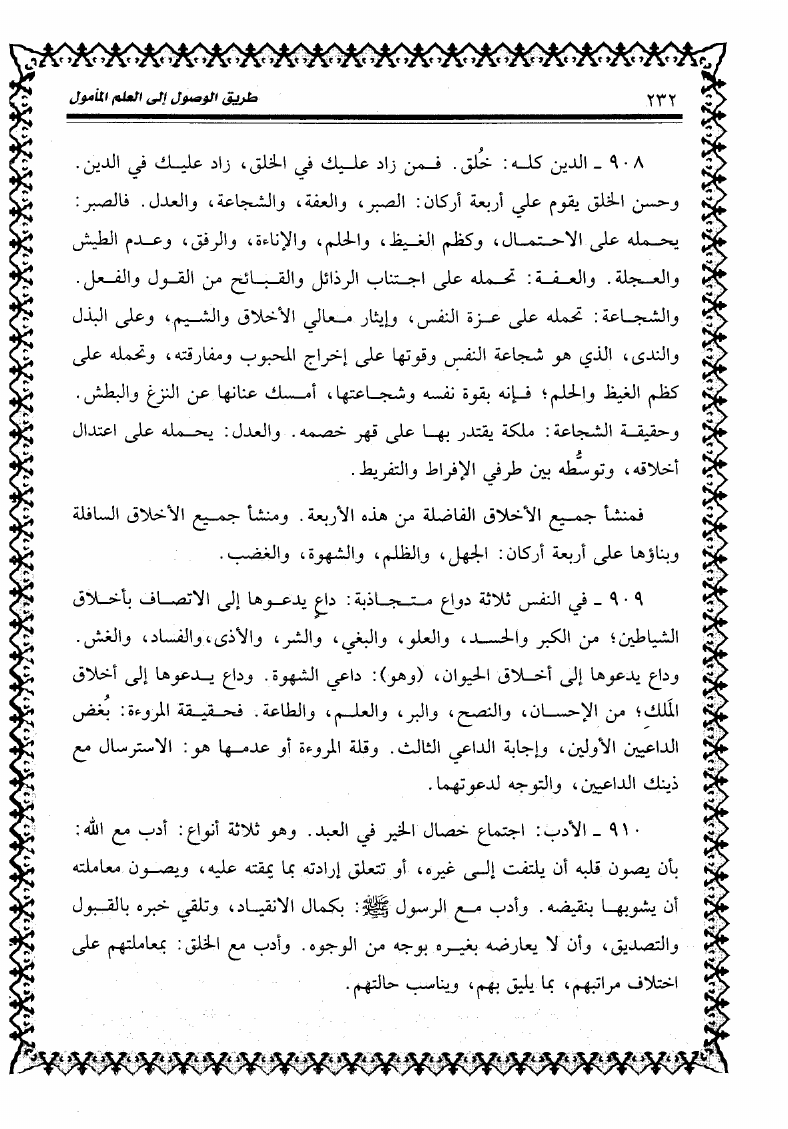 ٢٣٢ طريق الوصول إلى العلم المأمول
٩٠٨ ـ الدين كله: خُلق. فمن زاد عليك في الخلق، زاد عليك في الدين.
وحسن الخلق يقوم علي أربعة أركان: الصبر، والعفة، والشجاعة، والعدل. فالصبر:
يحمله على الاحتمال، وكظم الغيظ، والحلم، والإناءة، والرفق، وعدم الطيش
والعجلة. والعفة: تحمله على اجتناب الرذائل والقبائح من القول والفعل.
والشجاعة: تحمله على عزة النفس، وإيثار معالي الأخلاق والشيم، وعلى البذل
والندى، الذي هو شجاعة النفس وقوتها على إخراج المحبوب ومفارقته، وتحمله على
كظم الغيظ والحلم؛ فإنه بقوة نفسه وشجاعتها، أمسك عنانها عن النزغ والبطش.
وحقيقة الشجاعة: ملكة يقتدر بها على قهر خصمه. والعدل: يحمله على اعتدال
أخلاقه، وتوسُّطه بين طرفي الإفراط والتفريط.
فمنشأ جميع الأخلاق الفاضلة من هذه الأربعة. ومنشأ جميع الأخلاق السافلة
وبناؤها على أربعة أركان: الجهل، والظلم، والشهوة، والغضب.
٩٠٩ ـ في النفس ثلاثة دواع متجاذبة: داعٍ يدعوها إلى الاتصاف بأخلاق
الشياطين؛ من الكبر والحسد، والعلو، والبغي، والشر، والأذى، والفساد، والغش.
وداع يدعوها إلى أخلاق الحيوان، (وهو): داعي الشهوة. وداع يدعوها إلى أخلاق
الملَكِ؛ من الإحسان، والنصح، والبر، والعلم، والطاعة. فحقيقة المروءة: بُغض
الداعيين الأولين، وإجابة الداعي الثالث. وقلة المروءة أو عدمها هو: الاسترسال مع
ذينك الداعيين، والتوجه لدعوتهما.
٩١٠ ـ الأدب: اجتماع خصال الخير في العبد. وهو ثلاثة أنواع: أدب مع الله:
بأن يصون قلبه أن يلتفت إلى غيره، أو تتعلق إرادته بما يمقته عليه، ويصون معاملته
أن يشوبها بنقيضه. وأدب مع الرسول ﷺ: بكمال الانقياد، وتلقي خبره بالقبول
والتصديق، وأن لا يعارضه بغيره بوجه من الوجوه. وأدب مع الخلق: بمعاملتهم على
اختلاف مراتبهم، بما يليق بهم، ويناسب حالتهم.